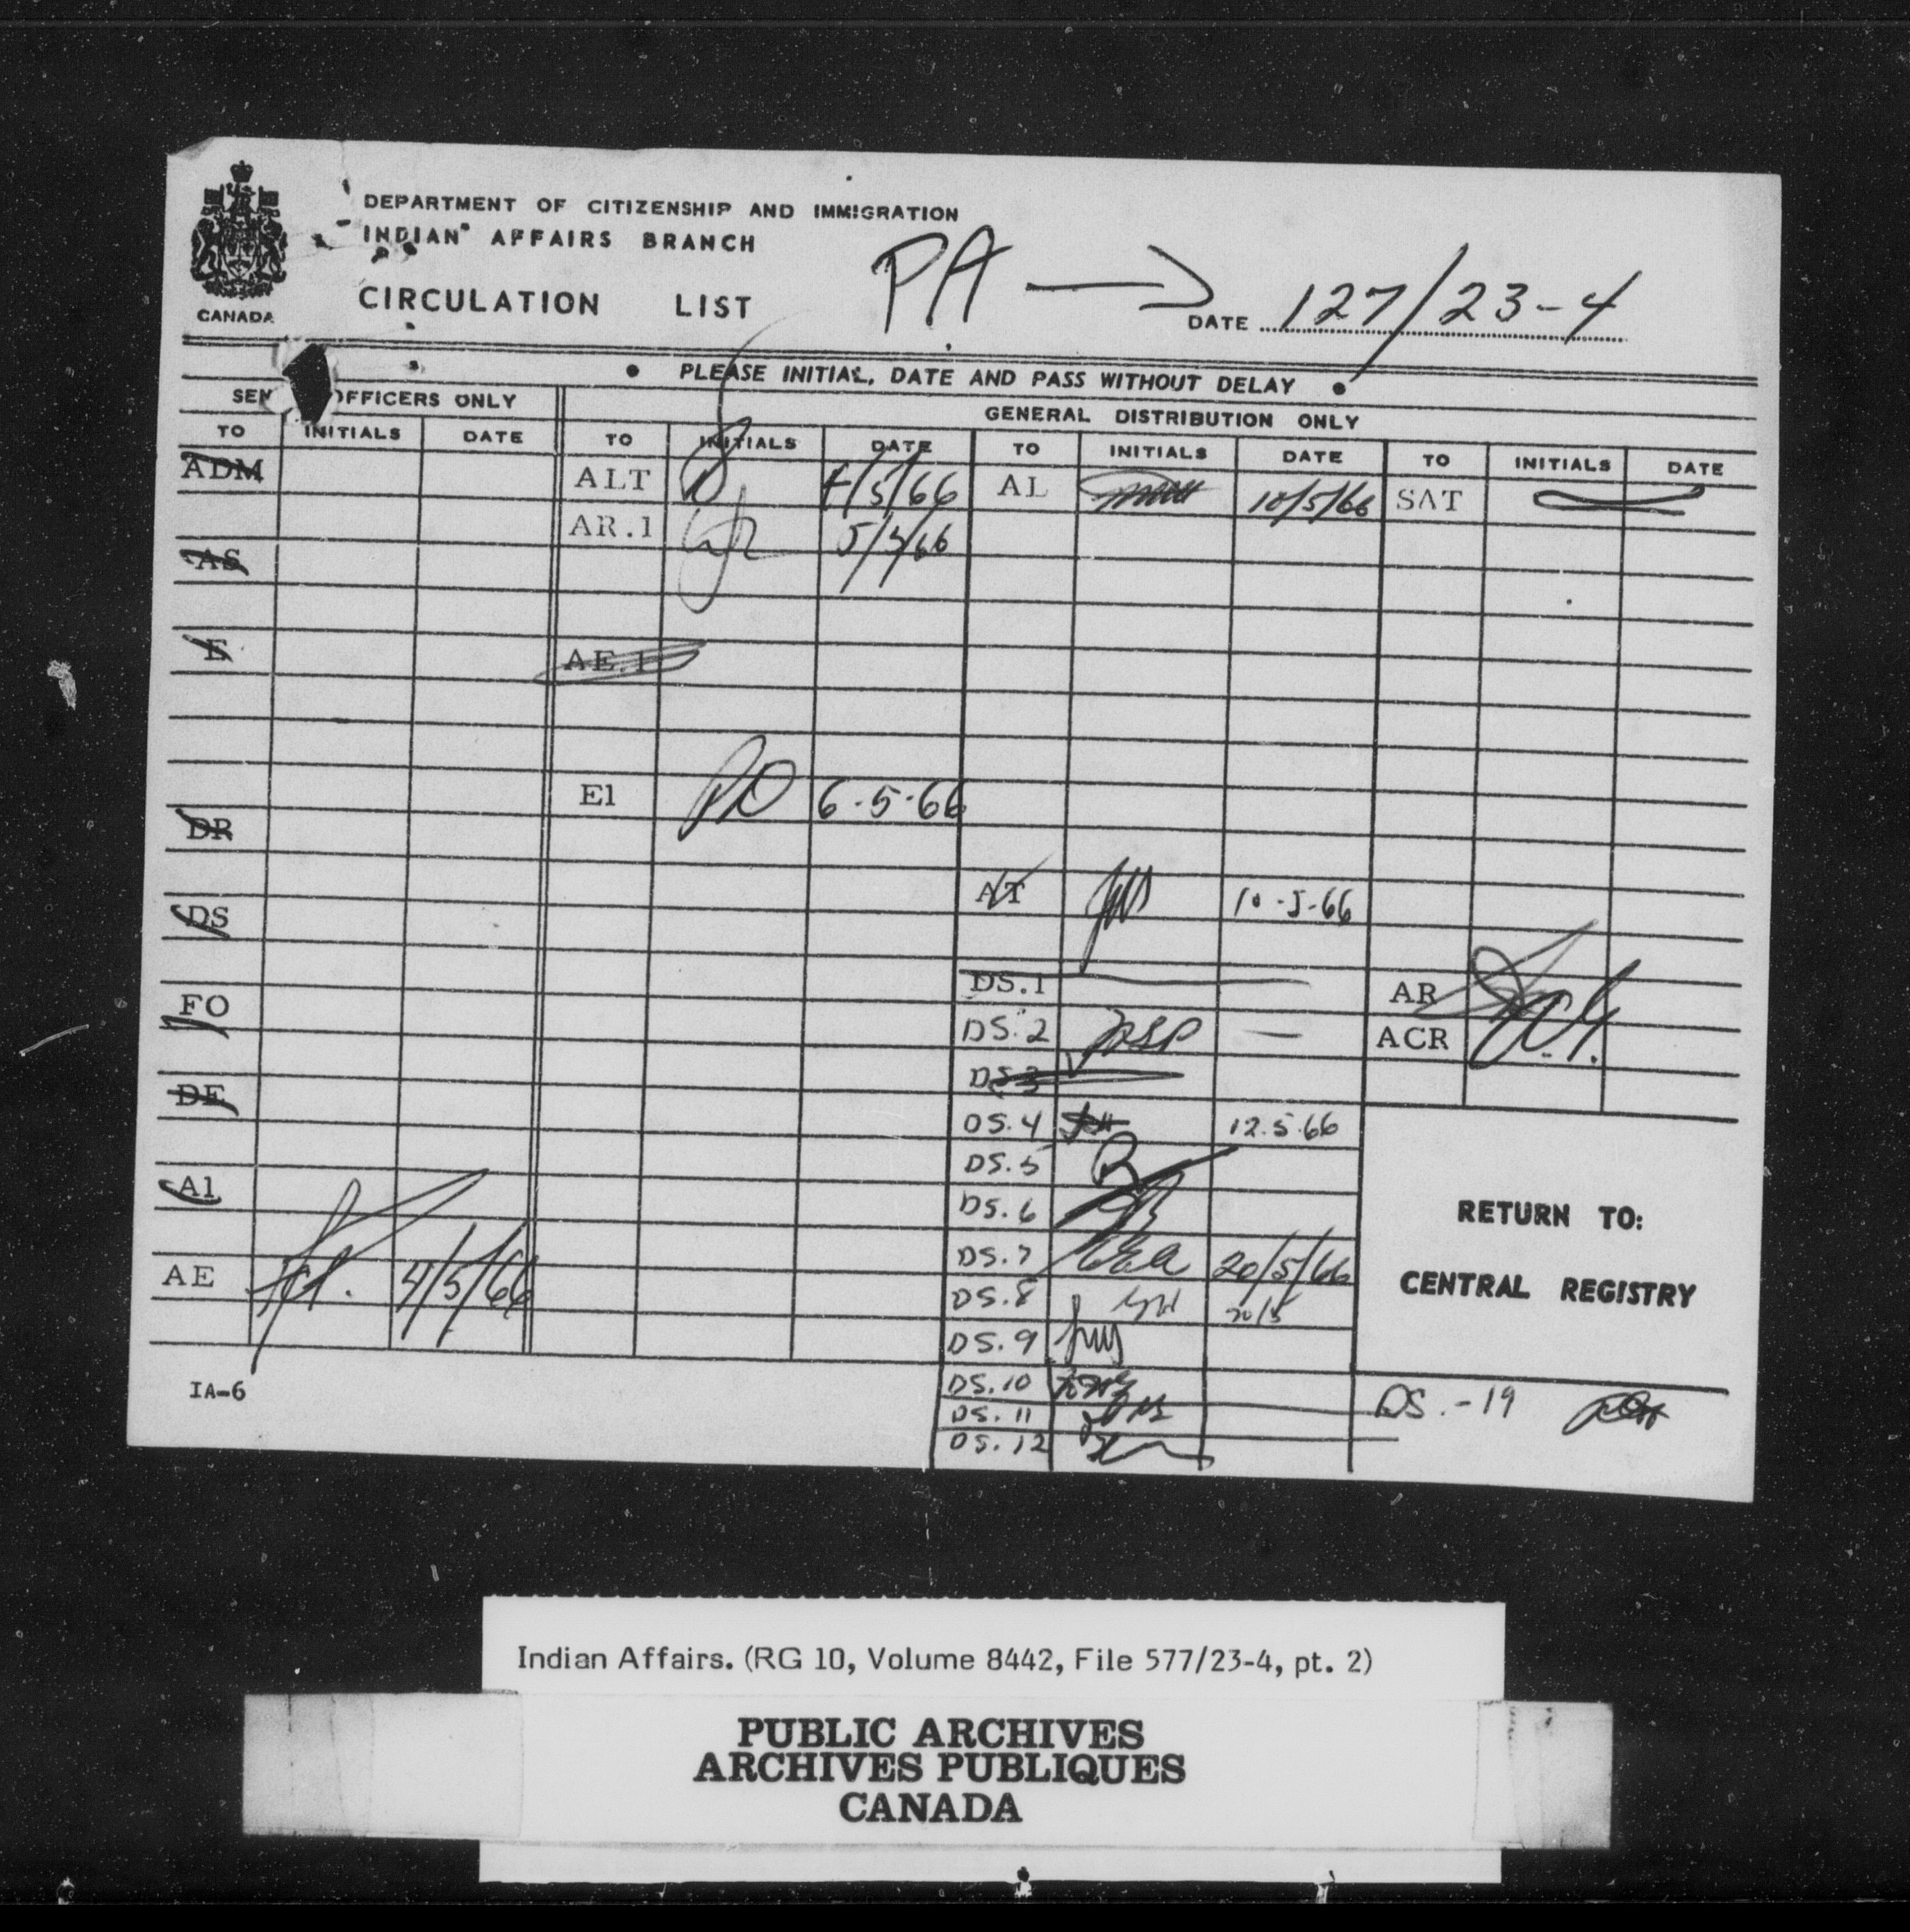 DEPARTMENT OF CITIZENSHIP AND IMMIGRATION
INDIAN AFFAIRS BRANCH
CANADA
CIRCULATION LIST
PA
DATE 127/23-4
• PLEASE INITIAL, DATE AND PASS WITHOUT DELAY •
SEN OFFICERS ONLY
GENERAL DISTRIBUTION ONLY
TO INITIALS DATE TO INITIALS DATE TO INITIALS DATE TO INITIALS DATE
ADM ALT /5/66 AL 10/5/66 SAT
AR.1 5/5/66
AS
E AE.1
E1 6-5-66
DR
AT 10-5-66
DS
DS.1 AR
FO DS.2 ACR
DS.3
DE DS.4 12.5.66
DS.5
A1 DS.6
DS.7 20/5/66
AE 4/5/66 DS.8 20/5
DS.9
RETURN TO:
CENTRAL REGISTRY
IA-6
DS.10 DS.-19
DS.11
DS.12
Indian Affairs. (RG 10, Volume 8442, File 577/23-4, pt. 2)
PUBLIC ARCHIVES
ARCHIVES PUBLIQUES
CANADA